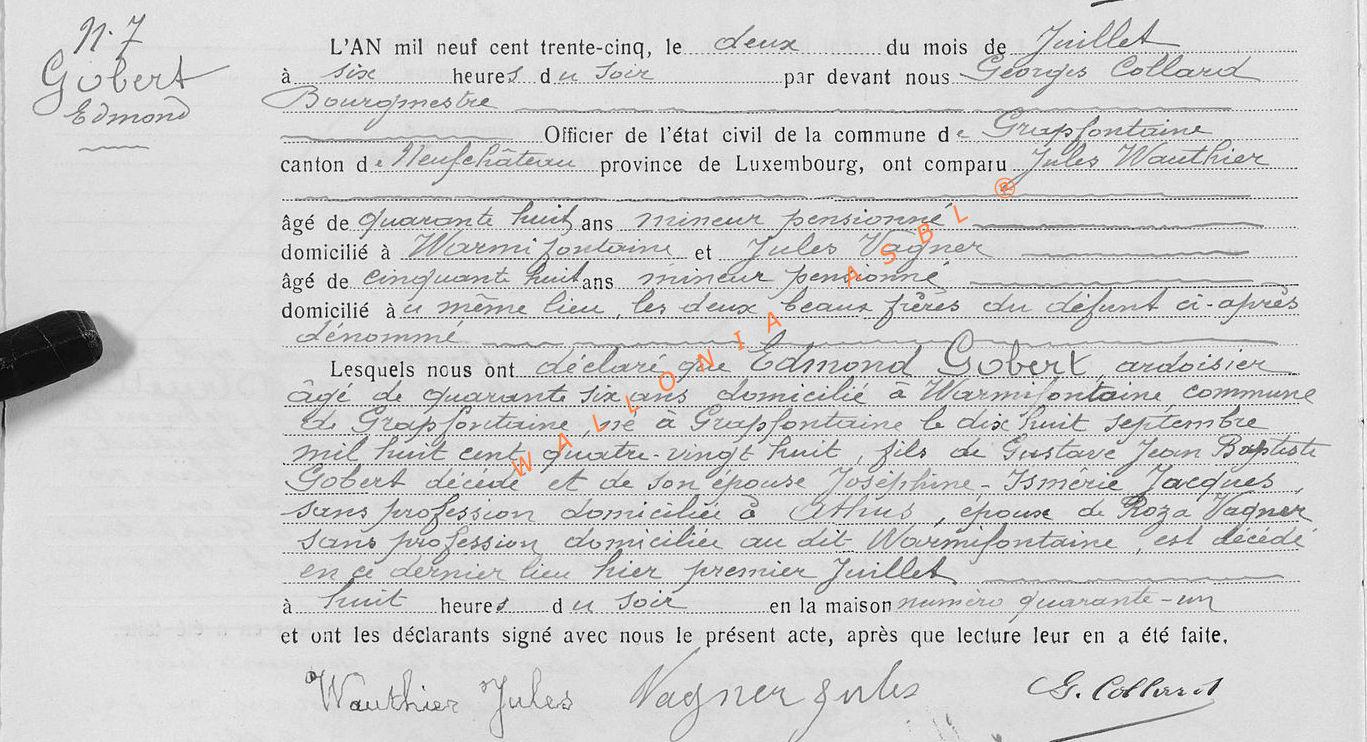 N. 7
Gobert
Edmond
L'AN mil neuf cent trente-cinq, le deux du mois de Juillet
à six heures du soir par devant nous Georges Collard
Bourgmestre
Officier de l'état civil de la commune de Grapfontaine
canton de Neufchâteau province de Luxembourg, ont comparu Jules Wauthier
âgé de quarante huit ans mineur pensionné
domicilié à Warmifontaine et Jules Vagner
âgé de cinquante huit ans mineur pensionné
domicilié àu même lieu, les deux beaux frères du défunt ci-après
dénommé
Lesquels nous ont déclaré que Edmond Gobert ardoisier
âgé de quarante six ans domicilié à Warmifontaine, commune
de Grapfontaine, né à Grapfontaine le dix huit septembre
mil huit cent quatre-vingt huit, fils de Gustave Jean Baptiste
Gobert décédé et de son épouse Joséphine-Ismérie Jacques,
sans profession domiciliée à Athus, époux de Roza Vagner
sans profession domiciliée au dit Warmifontaine, est décédé
en ce dernier lieu hier premier Juillet
à huit heures du soir en la maison numéro quarante-un
et ont les déclarants signé avec nous le présent acte, après que lecture leur en a été faite.
Wauthier Jules Vagner Jules G. Collard
WALLONIA ASBL ®